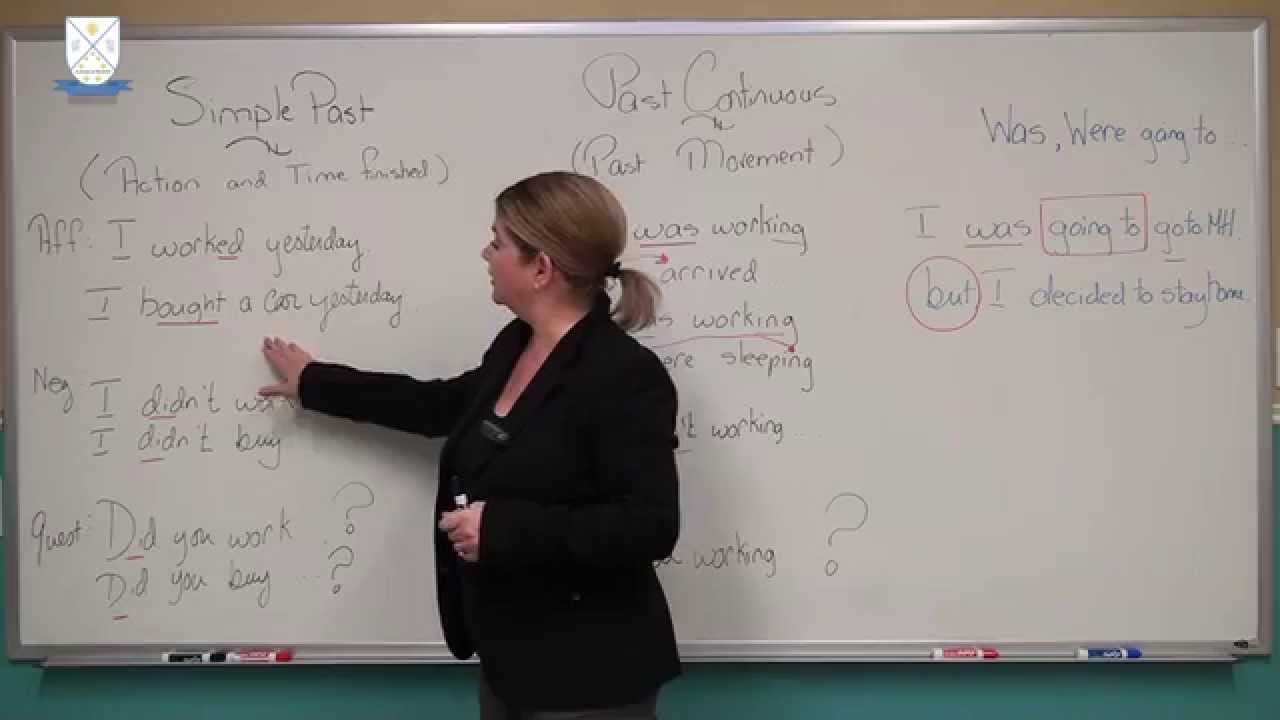 Simple Past
(Action and Time finished)
Aff: I worked yesterday.
I bought a car yesterday
Neg I didn't work
I didn't buy
Quest: Did you work ?
Did you buy ...?
Past Continuous
(Past Movement)
was working
arrived
working
sleeping
working ....
working ?
Was, Were going to ...
I was going to go to MH.
but I decided to stay home.